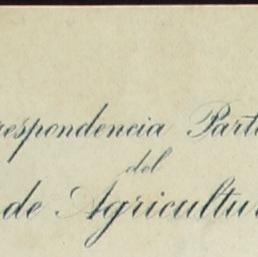 respondencia Parti
del
de Agricultu